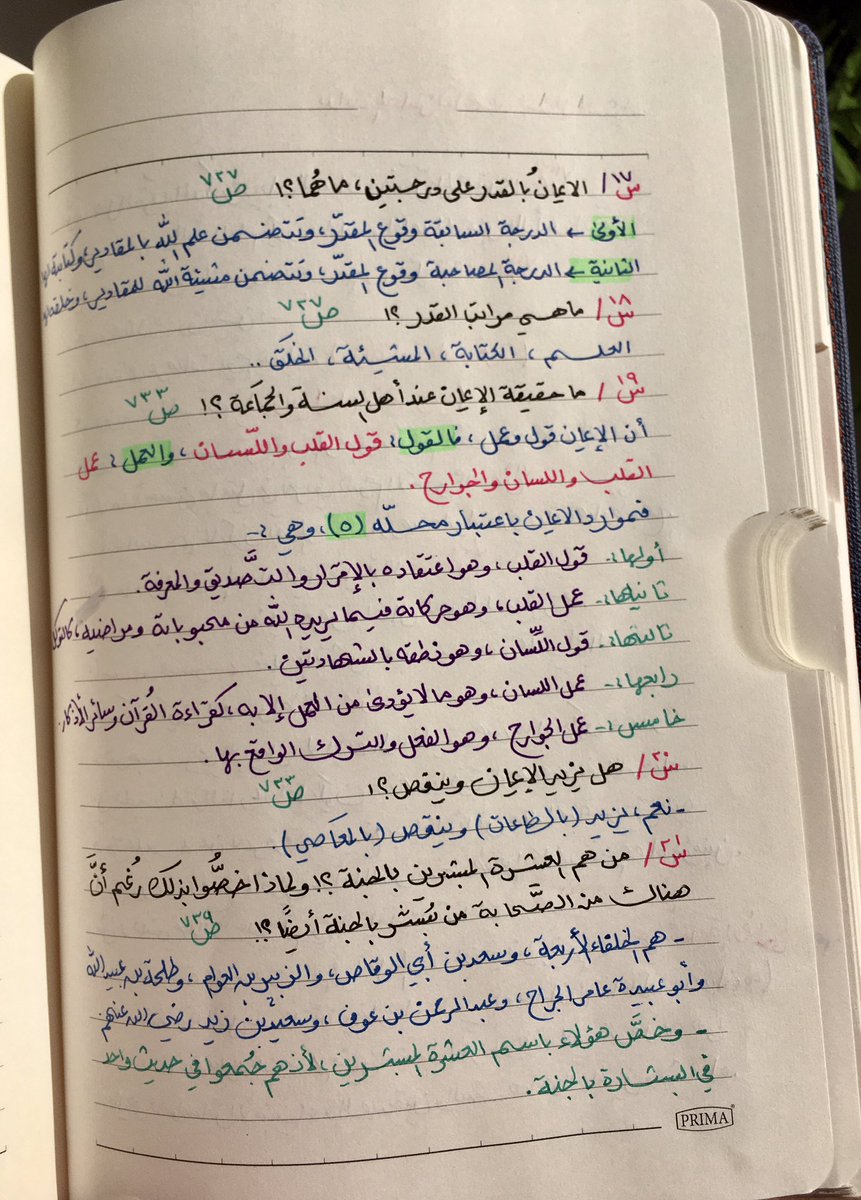 س١٧/ الايمانُ بالقدر على درجتين، ما هُما؟! ص٧٢٧
الأولى ← الدرجة السابقة وقوع المقدّر، وتتضمن علم الله بالمقادير، وكتابته لها
الثانية ← الدرجة المصاحبة وقوع المقدّر، وتتضمن مشيئة الله للمقادير، وخلقه لها
س١٨/ ما هي مراتب القدر؟! ص٧٢٧
العلم، الكتابة، المشيئة، الخلق..
س١٩/ ما حقيقة الإيمان عند أهل السنة والجماعة؟! ص٧٣٣
أن الإيمان قول وعمل، فالقول: قول القلب واللّسان، والعمل: عمل
القلب واللسان والجوارح.
فموارد الايمان باعتبار محلّه (٥)، وهي:-
أولها:- قول القلب، وهو اعتقاده بالإقرار والتَّصديق والمعرفة.
ثانيها:- عمل القلب، وهو حركاته فيما يريده الله من محبوباته ومراضيه، كالتوكل
ثالثها:- قول اللِّسان، وهو نطقه بالشهادتين.
رابعها:- عمل اللسان، وهو ما لا يؤدى من العمل إلا به، كقراءة القُرآن وسائر الأذكار.
خامس:- عمل الجوارح، وهو الفعل والترك الواقع بها.
س٢٠/ هل يزيد الإيمان وينقص؟! ص٧٣٣
- نعم، يزيد (بالطاعات) وينقص (بالمعاصي).
س٢١/ من هم العشرة المبشرين بالجنة؟! ولماذا خصُّوا بذلك رُغم أنَّ
هناك من الصَّحابة من بُشّر بالجنة أيضًا؟! ص٧٣٩
- هم الخلفاء الأربعة، وسعد بن أبي الوقاص، والزبير بن العوام، وطلحة بن عبيد الله
وأبو عبيدة عامر الجراح، وعبدالرحمن بن عوف، وسعيد بن زيد رضي الله عنهم
- وخصَّ هؤلاء باسم العشرة المبشرين، لأنهم جُمعوا في حديث واحد
في البشارة بالجنة.
PRIMA